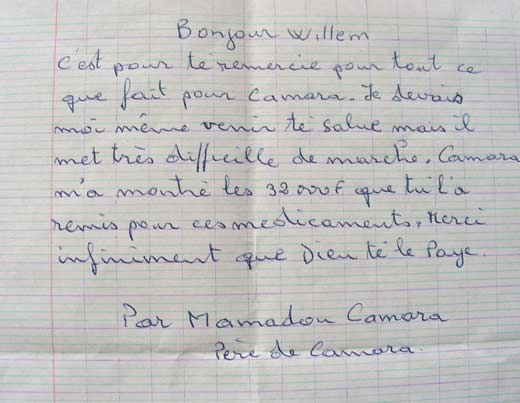 Bonjour Willem
C'est pour te remercie pour tout ce
que fait pour Camara. Je devrais
moi même venir te salue mais il
met très difficille de marche. Camara
m'a montré les 32 000 F que tu l'a
remis pour ces medicaments, Merci
infiniment que Dieu te le Paye.
Par Mamadou Camara
Père de Camara.